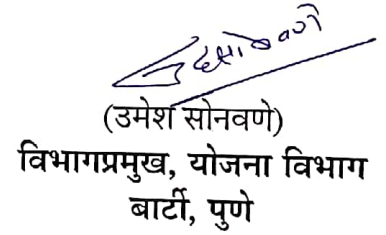 (उमेश सोनवणे)
विभागप्रमुख, योजना विभाग
बार्टी, पुणे